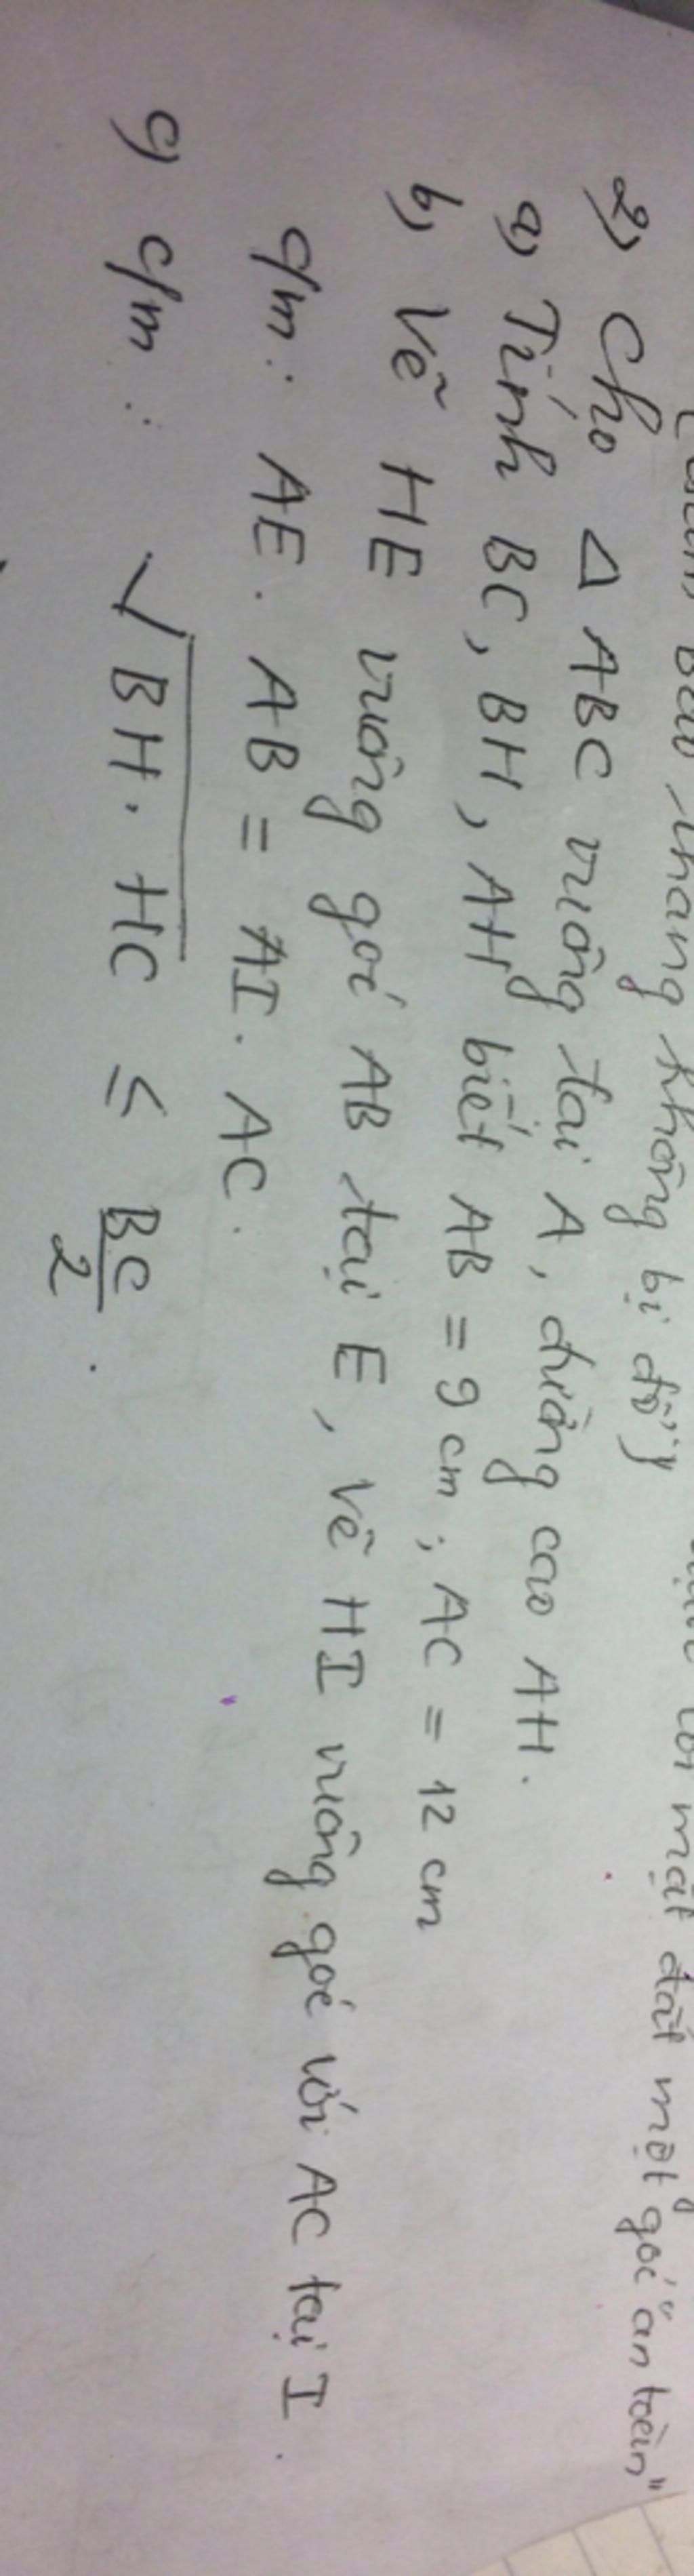 thang không bị đổ)
mặt đất một góc "an toàn"
2) Cho Δ ABC vuông tại A, đường cao AH.
a) Tính BC, BH, AH biết AB = 9 cm ; AC = 12 cm
b) Vẽ HE vuông góc AB tại E, vẽ HI vuông góc với AC tại I.
c/m : AE . AB = AI . AC .
c) c/m : √BH . HC ≤ BC/2 .